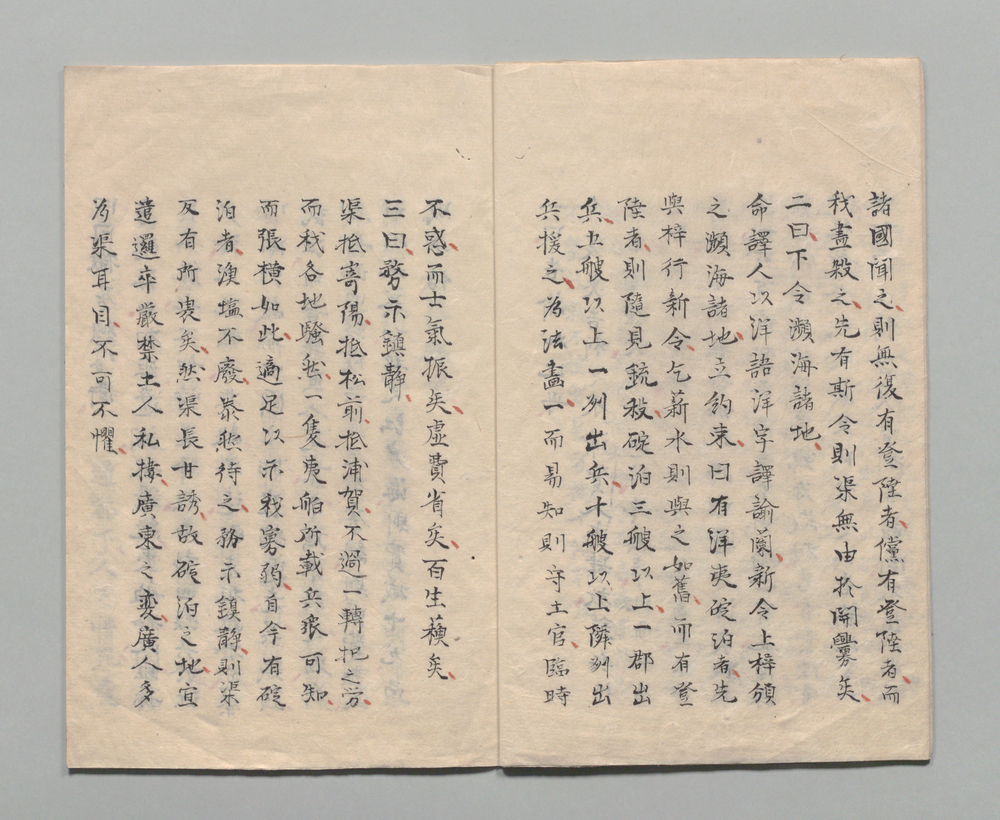 諸國聞之則無復有登陸者儻有登陸者而
我盡殺之先有斯令則渠無由於開釁矣
二曰下令瀕海諸地
命譯人以洋語洋字譯諭蘭新令上梓頒
之瀕海諸地立約束曰有洋夷碇泊者先
與梓行新令乞薪水則與之如舊而有登
陸者則隨見銃殺碇泊三艘以上一郡出
兵五艘以上一州出兵十艘以上隣州出
兵援之為法畫一而易知則守土官臨時
不惑而士氣振矣虛費省矣百生蘓矣
三曰務示鎮静
渠抵寄陽抵松前抵浦賀不過一轉柁之労
而我各地騷然一隻夷舶所載兵衆可知
而張横如此適足以示我寡弱自今有碇
泊者漁塩不廢恭然待之務示鎮静則渠
反有所畏矣然渠長甘誘故碇泊之地宜
遣邏卒嚴禁土人私接廣東之変廣人多
為渠耳目不可不懼